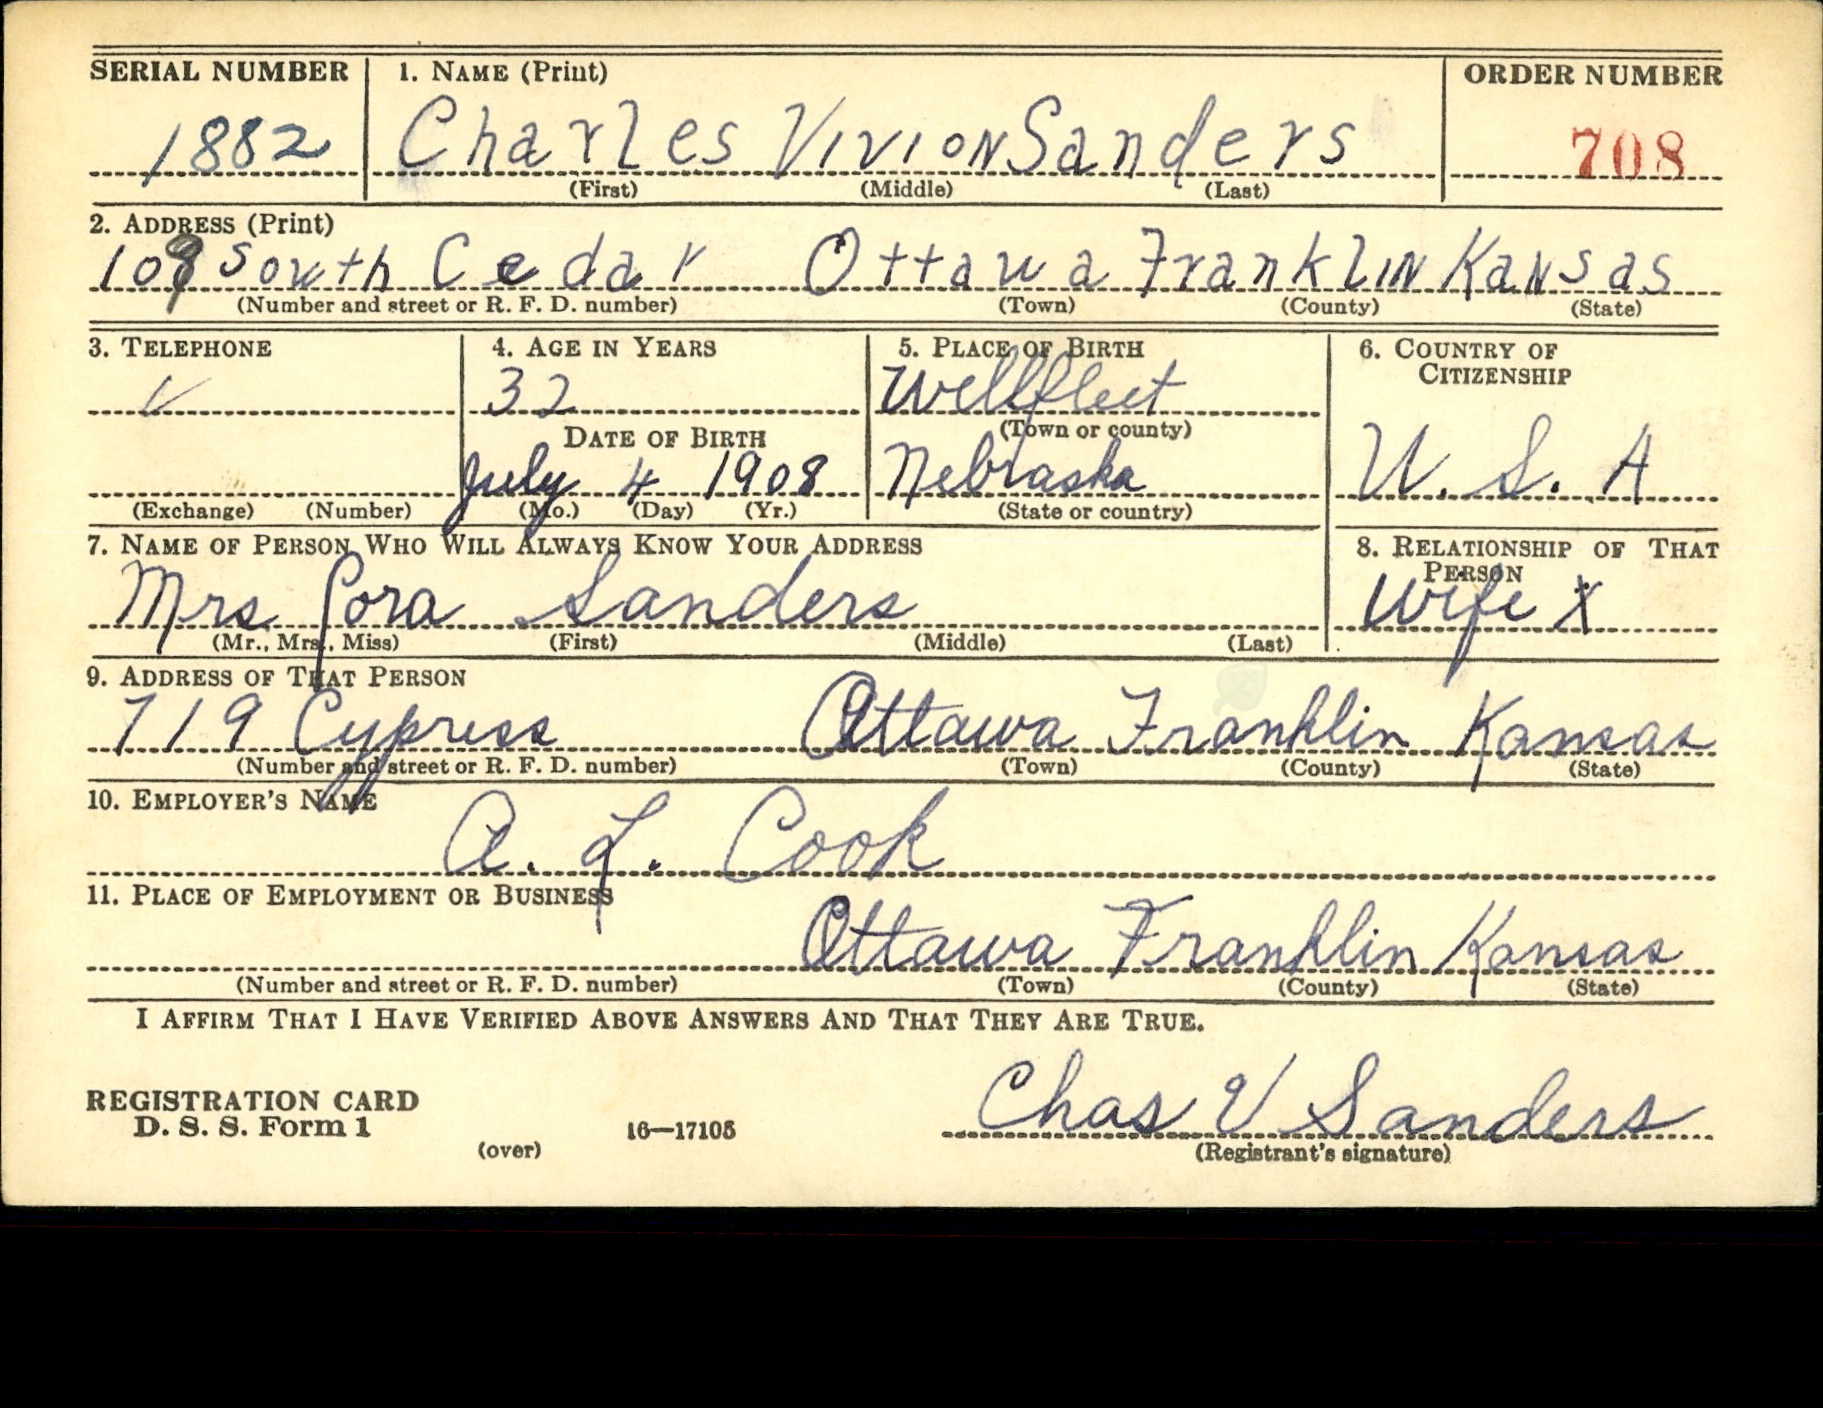 SERIAL NUMBER 1. NAME (Print) ORDER NUMBER
1882 Charles VIVION Sanders 708
(First) (Middle) (Last)
2. ADDRESS (Print)
109 South Cedar Ottawa Franklin Kansas
(Number and street or R. F. D. number) (Town) (County) (State)
3. TELEPHONE 4. AGE IN YEARS 5. PLACE OF BIRTH 6. COUNTRY OF CITIZENSHIP
32 Wellfleet
DATE OF BIRTH (Town or county)
July 4 1908 Nebraska U. S. A
(Exchange) (Number) (Mo.) (Day) (Yr.) (State or country)
7. NAME OF PERSON WHO WILL ALWAYS KNOW YOUR ADDRESS 8. RELATIONSHIP OF THAT PERSON
Mrs Sanders Wife X
(Mr., Mrs., Miss) (First) (Middle) (Last)
9. ADDRESS OF THAT PERSON
719 Cypress Ottawa Franklin Kansas
(Number and street or R. F. D. number) (Town) (County) (State)
10. EMPLOYER'S NAME
A. L. Cook
11. PLACE OF EMPLOYMENT OR BUSINESS
Ottawa Franklin Kansas
(Number and street or R. F. D. number) (Town) (County) (State)
I AFFIRM THAT I HAVE VERIFIED ABOVE ANSWERS AND THAT THEY ARE TRUE.
REGISTRATION CARD
D. S. S. Form 1 16—17105 Chas V Sanders
(over) (Registrant's signature)